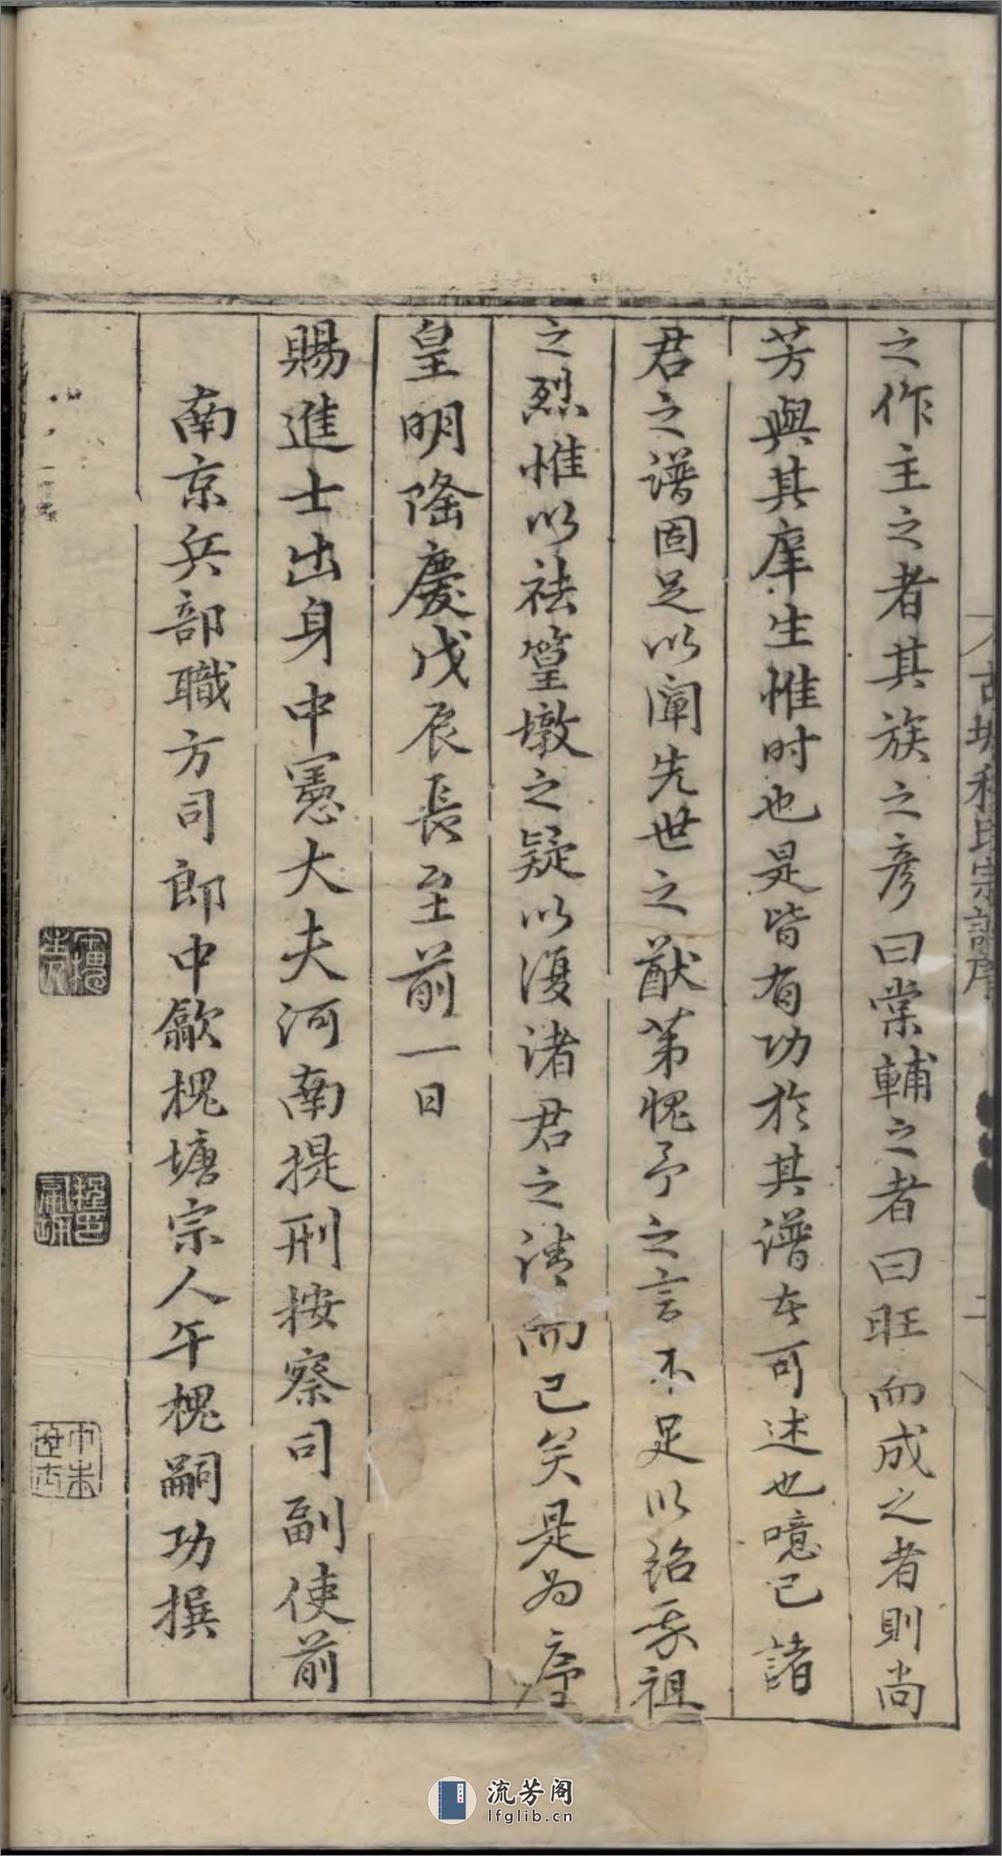 之作主之者其族之彦曰棠輔之者曰旺而成之者則尚
芳與其庠生惟时也是皆有功於其譜在可述也噫已諸
君之譜固足以闡先世之猷第愧予之言不足以紹我祖
之烈惟以祛篁墩之疑以復诸君之请而已矣是为序
皇明隆慶戊辰長至前一日
賜進士出身中憲大夫河南提刑按察司副使前
南京兵部職方司郎中歙槐塘宗人午槐嗣功撰
古城程氏宗譜序
二
流芳阁
lfglib.cn